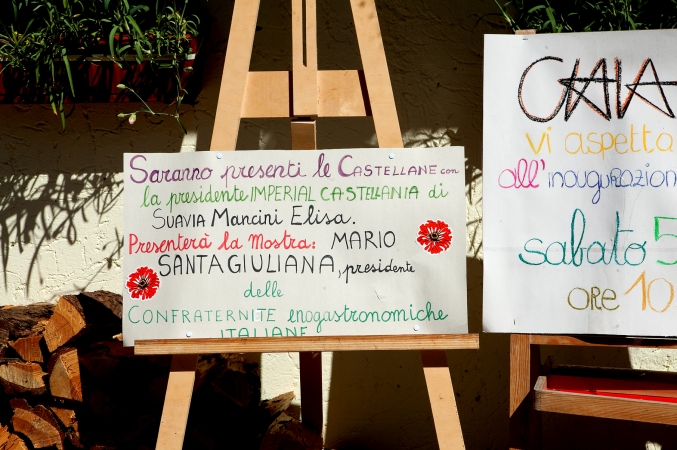 Saranno presenti le CASTELLANE con
la presidente IMPERIAL CASTELLANIA di
SUAVIA Mancini Elisa.
Presenterà la Mostra: MARIO
SANTAGIULIANA, presidente
delle
CONFRATERNITE enogastronomiche
ITALIANE
vi aspetta
all'inaugurazion
sabato 5
ORE 10